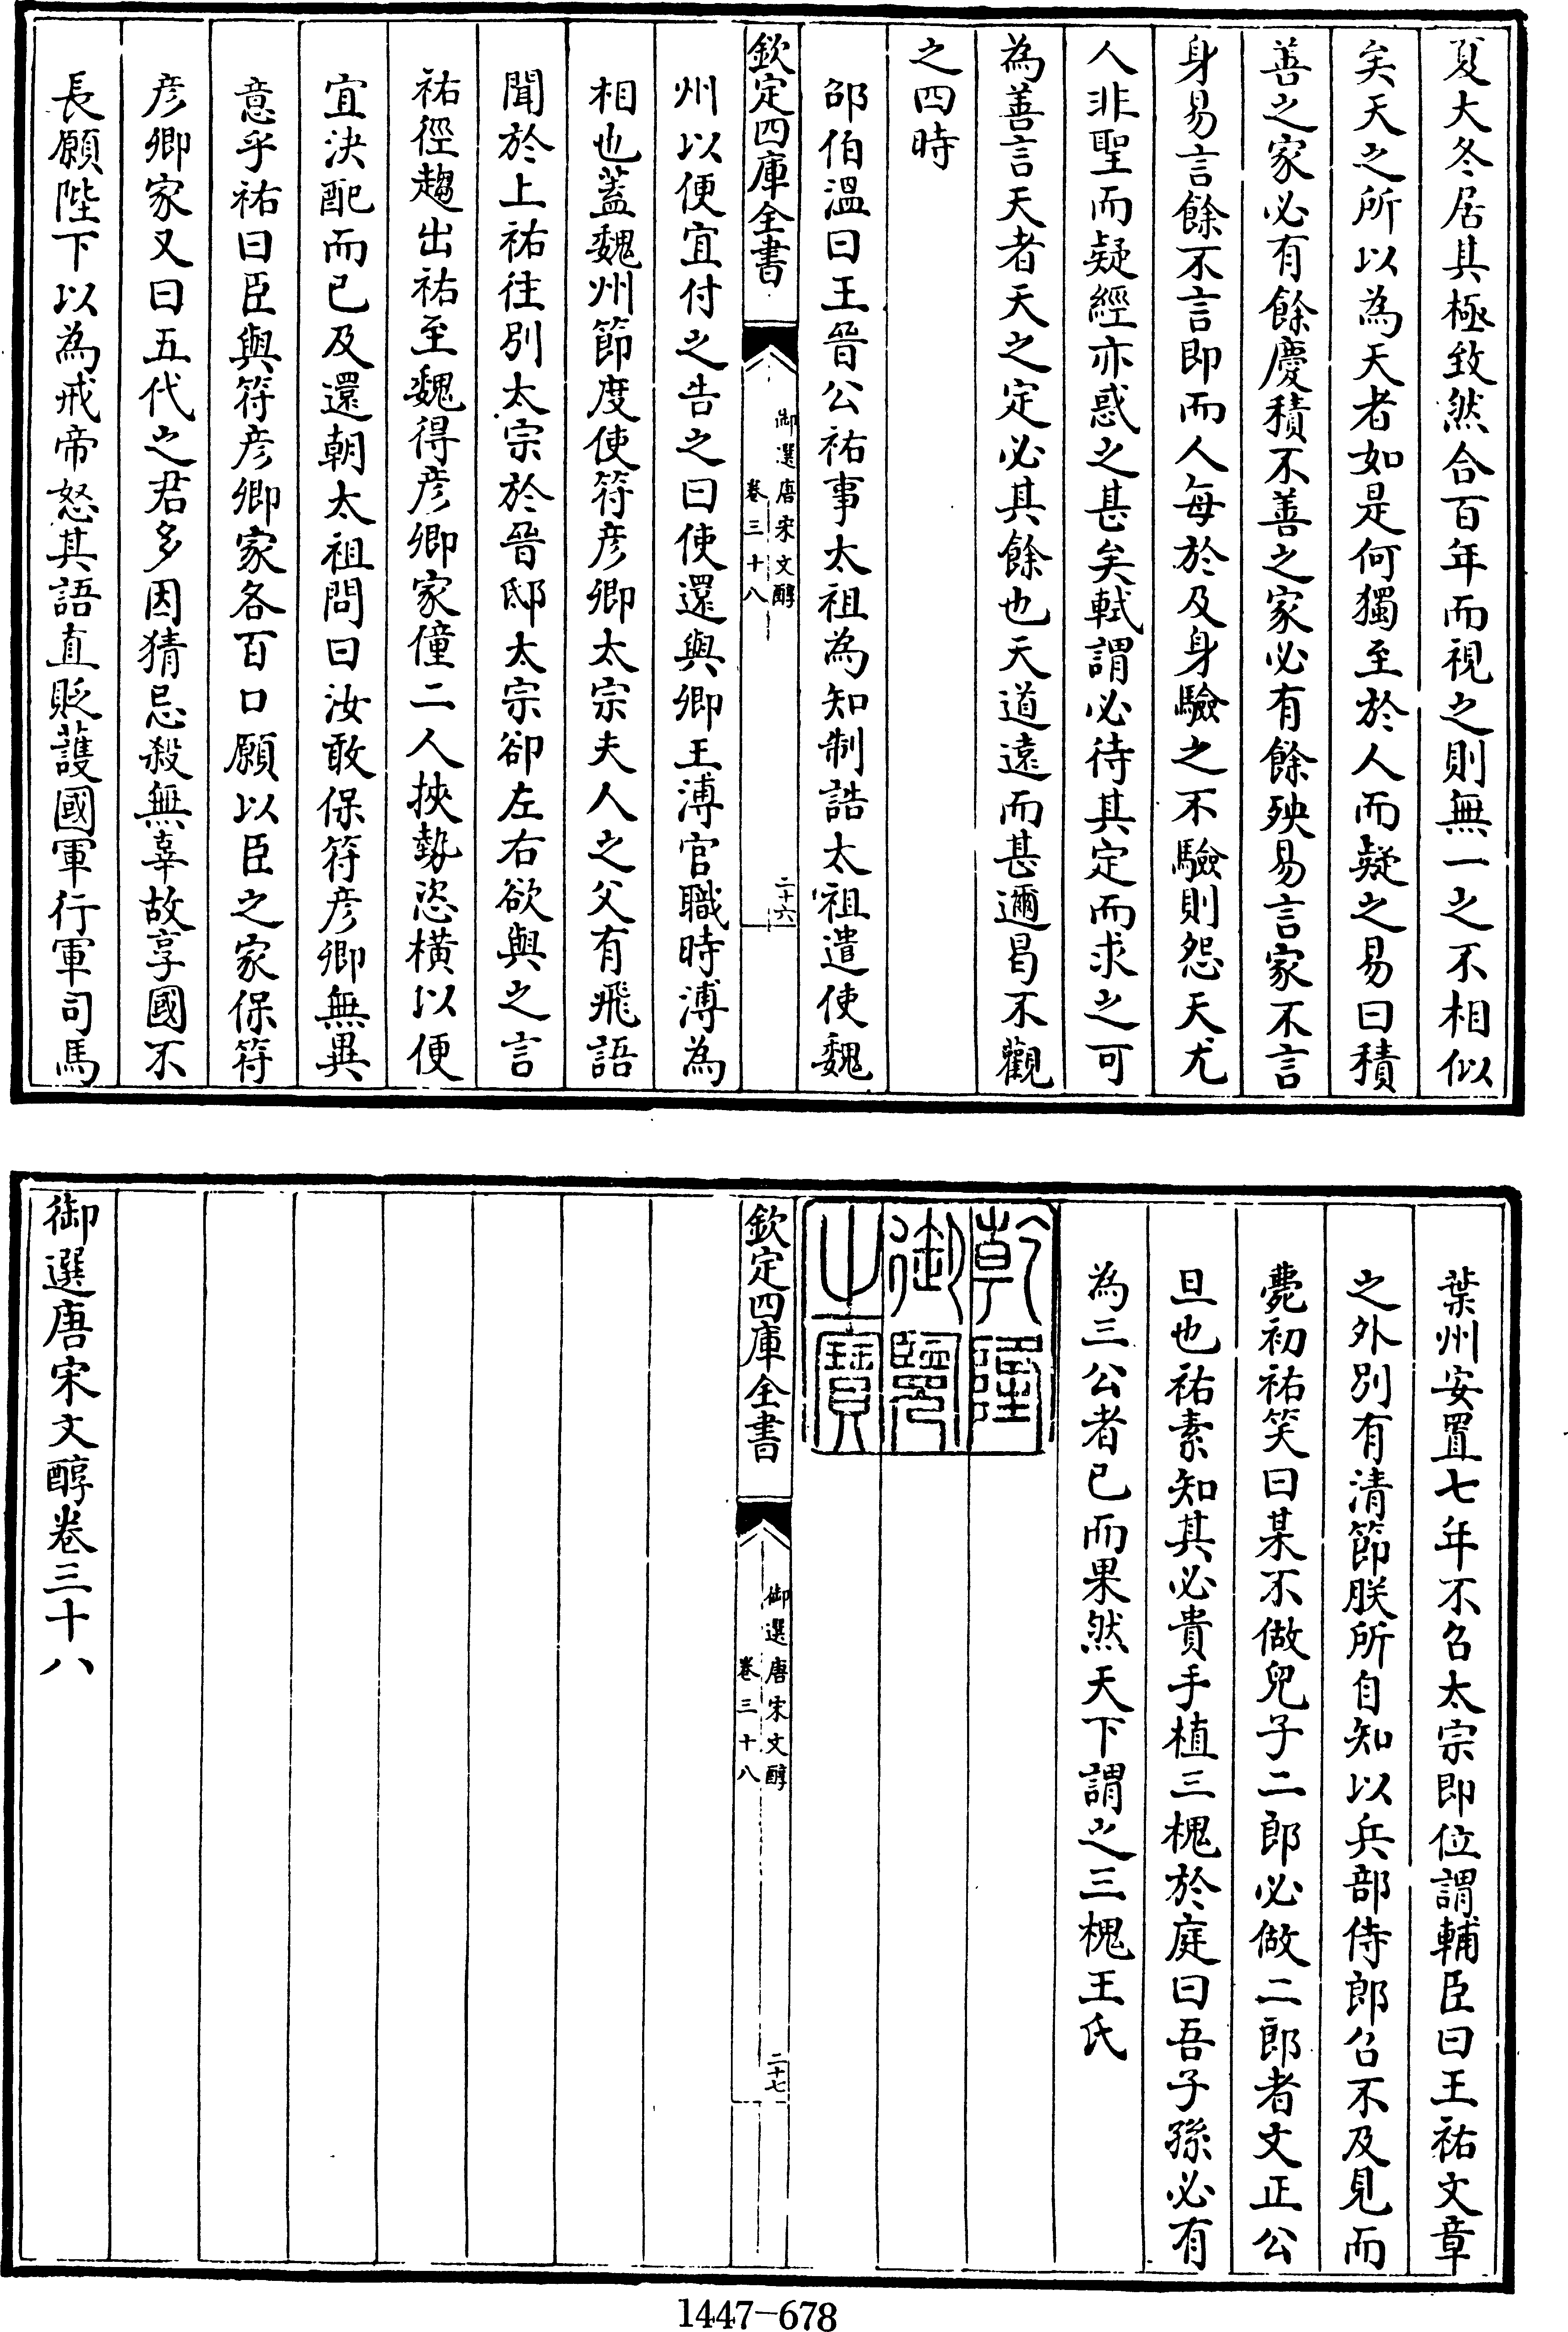 夏大冬居其極致然合百年而視之則無一之不相似
矣天之所以為天者如是何獨至於人而疑之易曰積
善之家必有餘慶積不善之家必有餘殃易言家不言
身易言餘不言即而人每於及身驗之不驗則怨天尤
人非聖而疑經亦惑之甚矣軾謂必待其定而求之可
為善言天者天之定必其餘也天道遠而甚邇曷不觀
之四時
邵伯溫曰王晉公祐事太祖為知制誥太祖遣使魏
欽定四庫全書
御選唐宋文醇
卷三十八
二十六
州以便宜付之告之曰使還與卿王溥官職時溥為
相也蓋魏州節度使符彦卿太宗夫人之父有飛語
聞於上祐往別太宗於晉邸太宗卻左右欲與之言
祐徑趨出祐至魏得彦卿家僮二人挾勢恣橫以便
宜決配而已及還朝太祖問曰汝敢保符彦卿無異
意乎祐曰臣與符彦卿家各百口願以臣之家保符
彦卿家又曰五代之君多因猜忌殺無辜故享國不
長願陛下以為戒帝怒其語直貶護國軍行軍司馬
葉州安置七年不召太宗即位謂輔臣曰王祐文章
之外別有清節朕所自知以兵部侍郎召不及見而
薨初祐笑曰某不做兒子二郎必做二郎者文正公
旦也祐素知其必貴手植三槐於庭曰吾子孫必有
為三公者已而果然天下謂之三槐王氏
乾隆
御覽
之寶
欽定四庫全書
御選唐宋文醇
卷三十八
二十七
御選唐宋文醇卷三十八
1447-678